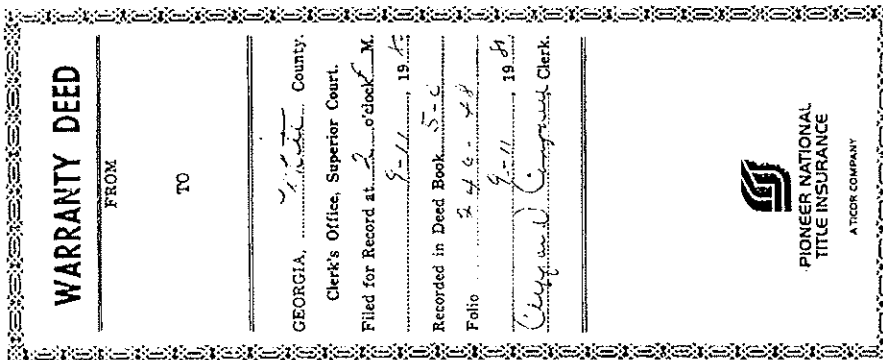 WARRANTY DEED
FROM
TO
GEORGIA, County.
Clerk's Office, Superior Court.
Filed for Record at 2 o'clock M.
9-11, 19
Recorded in Deed Book 5-C
Folio 246-48
9-11, 19
Clerk.
PIONEER NATIONAL
TITLE INSURANCE
A TICOR COMPANY